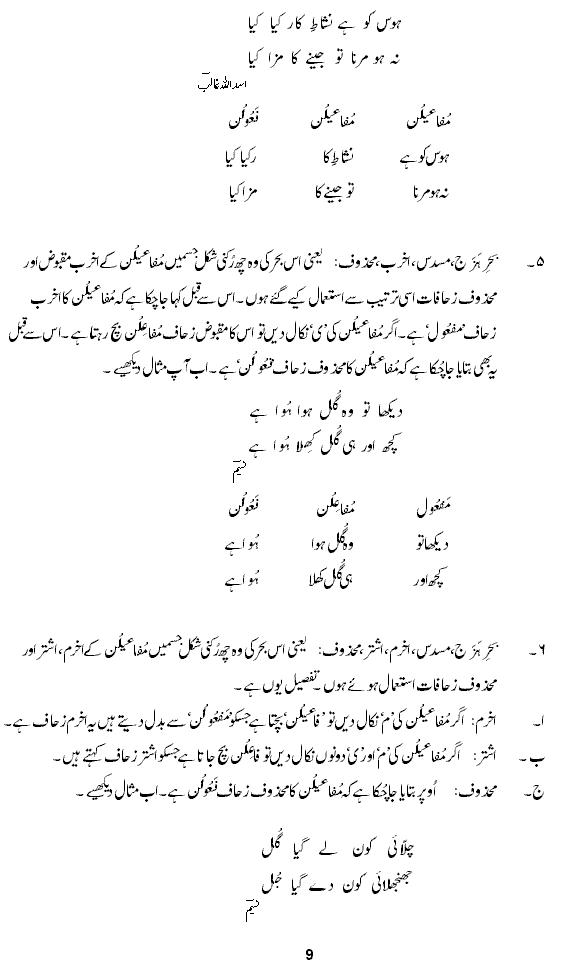 ہوس کو ہے نشاطِ کار کیا کیا
نہ ہو مرنا تو جینے کا مزا کیا
اسد اللہ غالبؔ
مُفاعیلُن مُفاعیلُن فَعُولُن
ہوس کو ہے نشاطِ کا رکیا کیا
نہ ہو مرنا تو جینے کا مزا کیا
۵۔ بحرِ ہَزَج، مسدس، اخرب، محذوف: یعنی اس بحر کی وہ چھ رُکنی شکل جسمیں مُفاعیلُن کے اخرب مقبوض اور
محذوف زحافات اسی ترتیب سے استعمال کیے گئے ہوں۔ اس سے قبل کہا جا چکا ہے کہ مُفاعیلُن کا اخرب
زحاف ’مفعُول‘ ہے۔ اگر مُفاعیلُن کی ’ی‘ نکال دیں تو اس کا مقبوض زحاف مُفاعِلُن بچ رہتا ہے۔ اس سے قبل
یہ بھی بتایا جا چُکا ہے کہ مُفاعیلُن کا محذوف زحاف ’فعُولُن‘ ہے۔ اب آپ مثال دیکھیے۔
دیکھا تو وہ گُل ہوا ہُوا ہے
کچھ اور ہی گُل کھِلا ہُوا ہے
نسیمؔ
مَفعُول مُفاعِلُن فَعُولُن
دیکھا تو وہ گُل ہوا ہُوا ہے
کچھ اور ہی گُل کھلا ہُوا ہے
۶۔ بحرِ ہَزَج، مسدس، اخرم، اشتر، محذوف: یعنی اس بحر کی وہ چھ رُکنی شکل جسمیں مُفاعیلُن کے اخرم، اشتر اور
محذوف زحافات استعمال ہوئے ہوں۔ تفصیل یوں ہے۔
ا۔ اخرم: اگر مُفاعیلُن کی ’م‘ نکال دیں تو ’فاعیلُن‘ بچتا ہے جسکو ’مَفعُولُن‘ سے بدل دیتے ہیں یہ اخرم زحاف ہے۔
ب۔ اشتر: اگر مُفاعیلُن کی ’م‘ اور ’ی‘ دونوں نکال دیں تو فاعِلُن بچ جاتا ہے جسکو اشتر زحاف کہتے ہیں۔
ج۔ محذوف: اُوپر بتایا جا چُکا ہے کہ مُفاعیلُن کا محذوف زحاف فَعُولُن ہے۔ اب مثال دیکھیے۔
چلّائی کون لے گیا گُل
جھنجھلائی کون دے گیا جُل
نسیمؔ
9